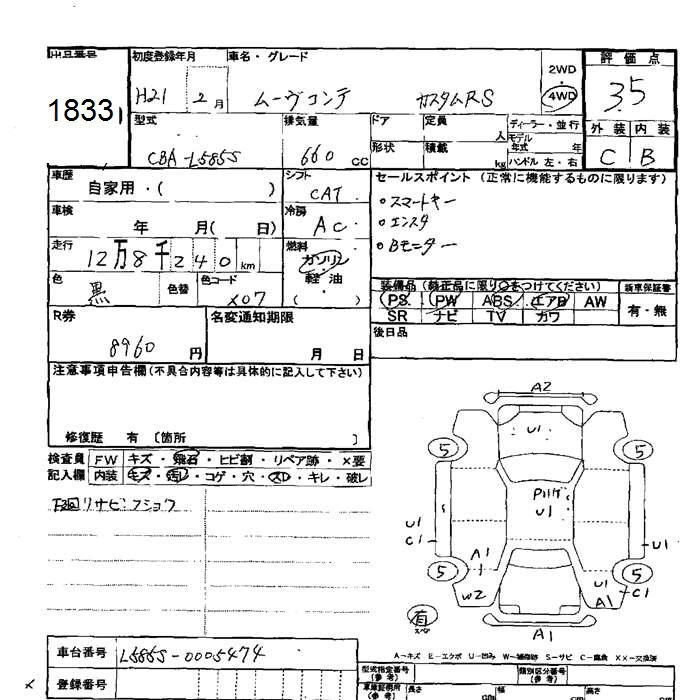 出品番号 初度登録年月 車名・グレード 2WD・4WD 評価点
1833 H21 2月 ムーヴコンテ カスタムRS 3.5
型式 排気量 ドア 定員 人 ディーラー・並行 外装 内装
CBA-L585S 660 cc 形状 積載 kg モデル年式 年 ハンドル 左・右 C B
車歴 自家用・( ) シフト CAT セールスポイント (正常に機能するものに限ります)
車検 年 月( 日) 冷房 AC
・スマートキー
・エンスタ
・Bモニター
走行 12万8千240km 燃料 ガソリン 軽油 ( )
色 黒 色替 色コード X07
装備品 (純正品に限り○をつけてください) 新車保証書
PS PW ABS エアB AW 有・無
SR ナビ TV カワ
R券 8960円 名変通知期限 月 日
後日品
注意事項申告欄(不具合内容等は具体的に記入して下さい)
修復歴 有 [箇所 ]
検査員 FW キズ・飛石・ヒビ割・リペア跡・×要
記入欄 内装 キズ・汚レ・コゲ・穴・スレ・キレ・破レ
下回リサビ・フショク
A2
U1
5 5
Pハゲ
U1
U1
C1
U1
A1
5 5
W2
U1
A1
C1
有
スペア
A1
A-キズ E-エクボ U-凹み W-補修跡 S-サビ C-腐食 XX-交換済
車台番号 L585S-0005474
登録番号
型式指定番号(参考) 類別区分番号(参考)
車庫証明用(参考) 長さ cm 幅 cm 高さ cm